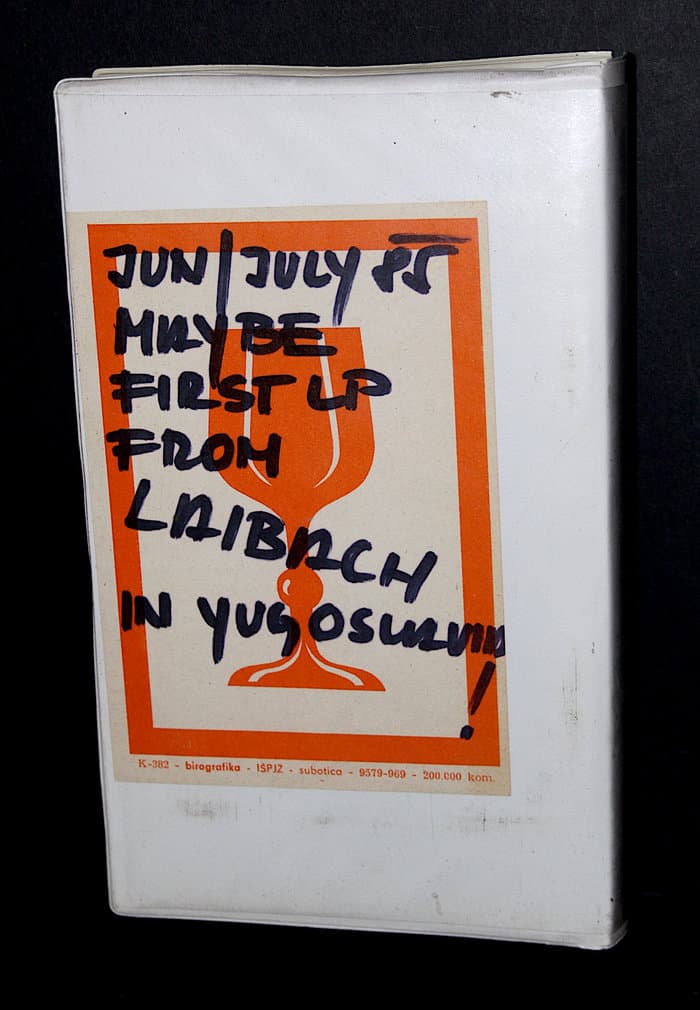 JUN/JULY 85
MAYBE
FIRST LP
FROM
LAIBACH
IN YUGOSLAVIA
!
K-382 - birografika - IŠPJZ - subotica - 9579-969 - 200.000 kom.